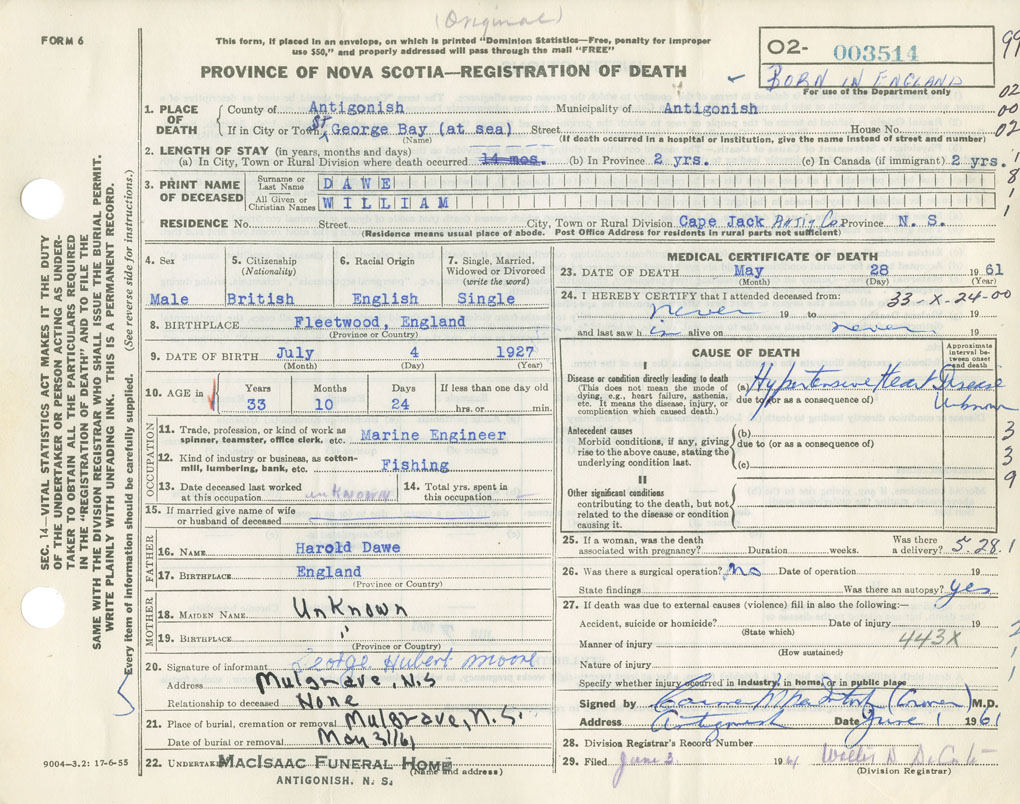 (Original)
FORM 6
This form, if placed in an envelope, on which is printed "Dominion Statistics—Free, penalty for improper
use $50," and properly addressed will pass through the mail "FREE"
O2- 003514
99
PROVINCE OF NOVA SCOTIA—REGISTRATION OF DEATH
BORN IN ENGLAND
For use of the Department only
02
00
02
1. PLACE OF DEATH
County of Antigonish Municipality of Antigonish
If in City or Town St George Bay (at sea) Street House No.
(Name) (If death occurred in a hospital or institution, give the name instead of street and number)
2. LENGTH OF STAY (in years, months and days)
(a) In City, Town or Rural Division where death occurred 14 mos. (b) In Province 2 yrs. (c) In Canada (if immigrant) 2 yrs.
1
8
1
1
3. PRINT NAME OF DECEASED
Surname or Last Name DAWE
All Given or Christian Names WILLIAM
RESIDENCE No. Street City, Town or Rural Division Cape Jack Antig Co Province N. S.
(Residence means usual place of abode. Post Office Address for residents in rural parts not sufficient)
SEC. 14—VITAL STATISTICS ACT MAKES IT THE DUTY
OF THE UNDERTAKER OR PERSON ACTING AS UNDER-
TAKER TO OBTAIN ALL THE PARTICULARS REQUIRED
IN THE "REGISTRATION OF DEATH" AND TO FILE THE
SAME WITH THE DIVISION REGISTRAR WHO SHALL ISSUE THE BURIAL PERMIT.
WRITE PLAINLY WITH UNFADING INK. THIS IS A PERMANENT RECORD.
Every item of information should be carefully supplied. (See reverse side for instructions.)
4. Sex
Male
5. Citizenship
(Nationality)
British
6. Racial Origin
English
7. Single, Married,
Widowed or Divorced
(write the word)
Single
8. BIRTHPLACE Fleetwood, England
(Province or Country)
9. DATE OF BIRTH July 4 1927
(Month) (Day) (Year)
10. AGE in
Years 33
Months 10
Days 24
If less than one day old
hrs. or min.
OCCUPATION
11. Trade, profession, or kind of work as
spinner, teamster, office clerk, etc. Marine Engineer
12. Kind of industry or business, as cotton-
mill, lumbering, bank, etc. Fishing
13. Date deceased last worked
at this occupation unknown
14. Total yrs. spent in
this occupation
15. If married give name of wife
or husband of deceased
FATHER
16. NAME Harold Dawe
17. BIRTHPLACE England
(Province or Country)
MOTHER
18. MAIDEN NAME Unknown
19. BIRTHPLACE "
(Province or Country)
20. Signature of informant George Hubert Moore
Address Mulgrave, N.S
Relationship to deceased None
21. Place of burial, cremation or removal Mulgrave, N.S.
Date of burial or removal May 31/61
22. UNDERTAKER MACISAAC FUNERAL HOME
(Name and address)
ANTIGONISH, N. S.
9004-3.2: 17-6-55
MEDICAL CERTIFICATE OF DEATH
23. DATE OF DEATH May 28 1961
(Month) (Day) (Year)
24. I HEREBY CERTIFY that I attended deceased from: 33-X-24-00
never 19 to 19
and last saw h is alive on never 19
CAUSE OF DEATH
Approximate
interval be-
tween onset
and death
I
Disease or condition directly leading to death
(This does not mean the mode of
dying, e.g., heart failure, asthenia,
etc. It means the disease, injury, or
complication which caused death.)
(a) Hypertensive Heart Disease
due to (or as a consequence of) Unknown
Antecedent causes
Morbid conditions, if any, giving
rise to the above cause, stating the
underlying condition last.
(b)
due to (or as a consequence of)
(c)
3
3
9
II
Other significant conditions
contributing to the death, but not
related to the disease or condition
causing it.
25. If a woman, was the death
associated with pregnancy? Duration weeks.
Was there
a delivery? 5.28.1
26. Was there a surgical operation? No Date of operation 19
State findings Was there an autopsy? yes
27. If death was due to external causes (violence) fill in also the following:—
Accident, suicide or homicide? Date of injury 19
(State which)
443X
Manner of injury
(How sustained)
Nature of injury
Specify whether injury occurred in industry, in home, or in public place
Signed by (Coroner) M.D.
Address Antigonish Date June 1 1961
28. Division Registrar's Record Number
29. Filed June 3 1961
(Division Registrar)